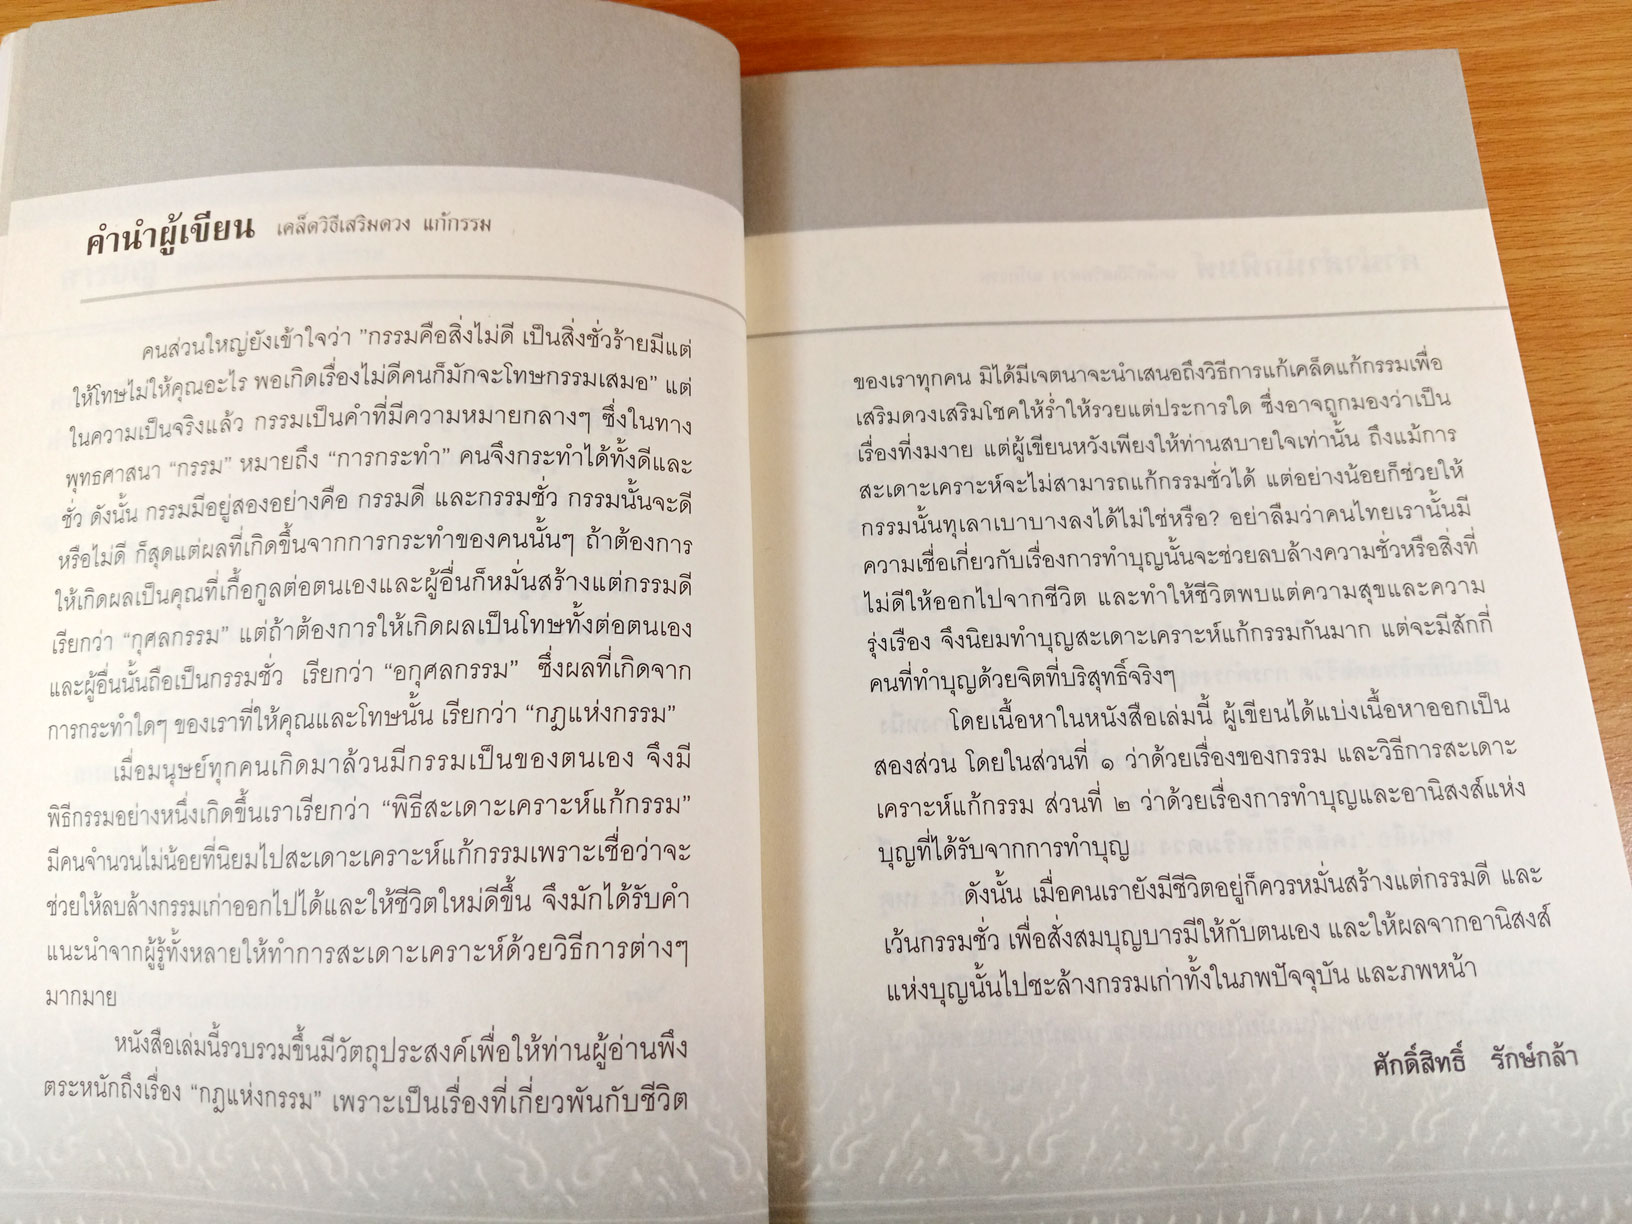 คำนำผู้เขียน เคล็ดวิธีเสริมดวง แก้กรรม
คนส่วนใหญ่ยังเข้าใจว่า "กรรมคือสิ่งไม่ดี เป็นสิ่งชั่วร้ายมีแต่
ให้โทษไม่ให้คุณอะไร พอเกิดเรื่องไม่ดีคนก็มักจะโทษกรรมเสมอ" แต่
ในความเป็นจริงแล้ว กรรมเป็นคำที่มีความหมายกลางๆ ซึ่งในทาง
พุทธศาสนา "กรรม" หมายถึง "การกระทำ" คนจึงกระทำได้ทั้งดีและ
ชั่ว ดังนั้น กรรมมีอยู่สองอย่างคือ กรรมดี และกรรมชั่ว กรรมนั้นจะดี
หรือไม่ดี ก็สุดแต่ผลที่เกิดขึ้นจากการกระทำของคนนั้นๆ ถ้าต้องการ
ให้เกิดผลเป็นคุณที่เกื้อกูลต่อตนเองและผู้อื่นก็หมั่นสร้างแต่กรรมดี
เรียกว่า "กุศลกรรม" แต่ถ้าต้องการให้เกิดผลเป็นโทษทั้งต่อตนเอง
และผู้อื่นนั้นถือเป็นกรรมชั่ว เรียกว่า "อกุศลกรรม" ซึ่งผลที่เกิดจาก
การกระทำใดๆ ของเราที่ให้คุณและโทษนั้น เรียกว่า "กฎแห่งกรรม"
เมื่อมนุษย์ทุกคนเกิดมาล้วนมีกรรมเป็นของตนเอง จึงมี
พิธีกรรมอย่างหนึ่งเกิดขึ้นเราเรียกว่า "พิธีสะเดาะเคราะห์แก้กรรม"
มีคนจำนวนไม่น้อยที่นิยมไปสะเดาะเคราะห์แก้กรรมเพราะเชื่อว่าจะ
ช่วยให้ลบล้างกรรมเก่าออกไปได้และให้ชีวิตใหม่ดีขึ้น จึงมักได้รับคำ
แนะนำจากผู้รู้ทั้งหลายให้ทำการสะเดาะเคราะห์ด้วยวิธีการต่างๆ
มากมาย
หนังสือเล่มนี้รวบรวมขึ้นมีวัตถุประสงค์เพื่อให้ท่านผู้อ่านพึง
ตระหนักถึงเรื่อง "กฎแห่งกรรม" เพราะเป็นเรื่องที่เกี่ยวพันกับชีวิต
ของเราทุกคน มิได้มีเจตนาจะนำเสนอถึงวิธีการแก้เคล็ดแก้กรรมเพื่อ
เสริมดวงเสริมโชคให้ร่ำให้รวยแต่ประการใด ซึ่งอาจถูกมองว่าเป็น
เรื่องที่งมงาย แต่ผู้เขียนหวังเพียงให้ท่านสบายใจเท่านั้น ถึงแม้การ
สะเดาะเคราะห์จะไม่สามารถแก้กรรมชั่วได้ แต่อย่างน้อยก็ช่วยให้
กรรมนั้นทุเลาเบาบางลงได้ไม่ใช่หรือ? อย่าลืมว่าคนไทยเรานั้นมี
ความเชื่อเกี่ยวกับเรื่องการทำบุญนั้นจะช่วยลบล้างความชั่วหรือสิ่งที่
ไม่ดีให้ออกไปจากชีวิต และทำให้ชีวิตพบแต่ความสุขและความ
รุ่งเรือง จึงนิยมทำบุญสะเดาะเคราะห์แก้กรรมกันมาก แต่จะมีสักกี่
คนที่ทำบุญด้วยจิตที่บริสุทธิ์จริงๆ
โดยเนื้อหาในหนังสือเล่มนี้ ผู้เขียนได้แบ่งเนื้อหาออกเป็น
สองส่วน โดยในส่วนที่ ๑ ว่าด้วยเรื่องของกรรม และวิธีการสะเดาะ
เคราะห์แก้กรรม ส่วนที่ ๒ ว่าด้วยเรื่องการทำบุญและอานิสงส์แห่ง
บุญที่ได้รับจากการทำบุญ
ดังนั้น เมื่อคนเรายังมีชีวิตอยู่ก็ควรหมั่นสร้างแต่กรรมดี และ
เว้นกรรมชั่ว เพื่อสั่งสมบุญบารมีให้กับตนเอง และให้ผลจากอานิสงส์
แห่งบุญนั้นไปชะล้างกรรมเก่าทั้งในภพปัจจุบัน และภพหน้า
ศักดิ์สิทธิ์ รักษ์กล้า